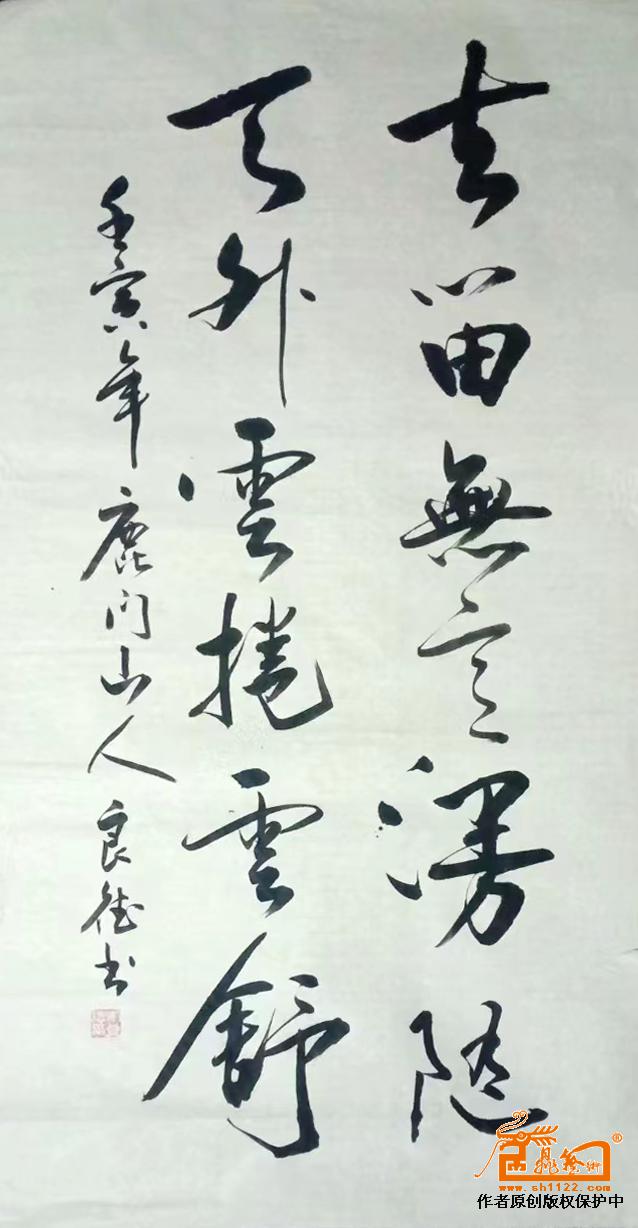 去留無意漫隨
天外雲捲雲舒
壬寅年鹿门山人良徳书
R
www.sh1122.com
作者原创版权保护中